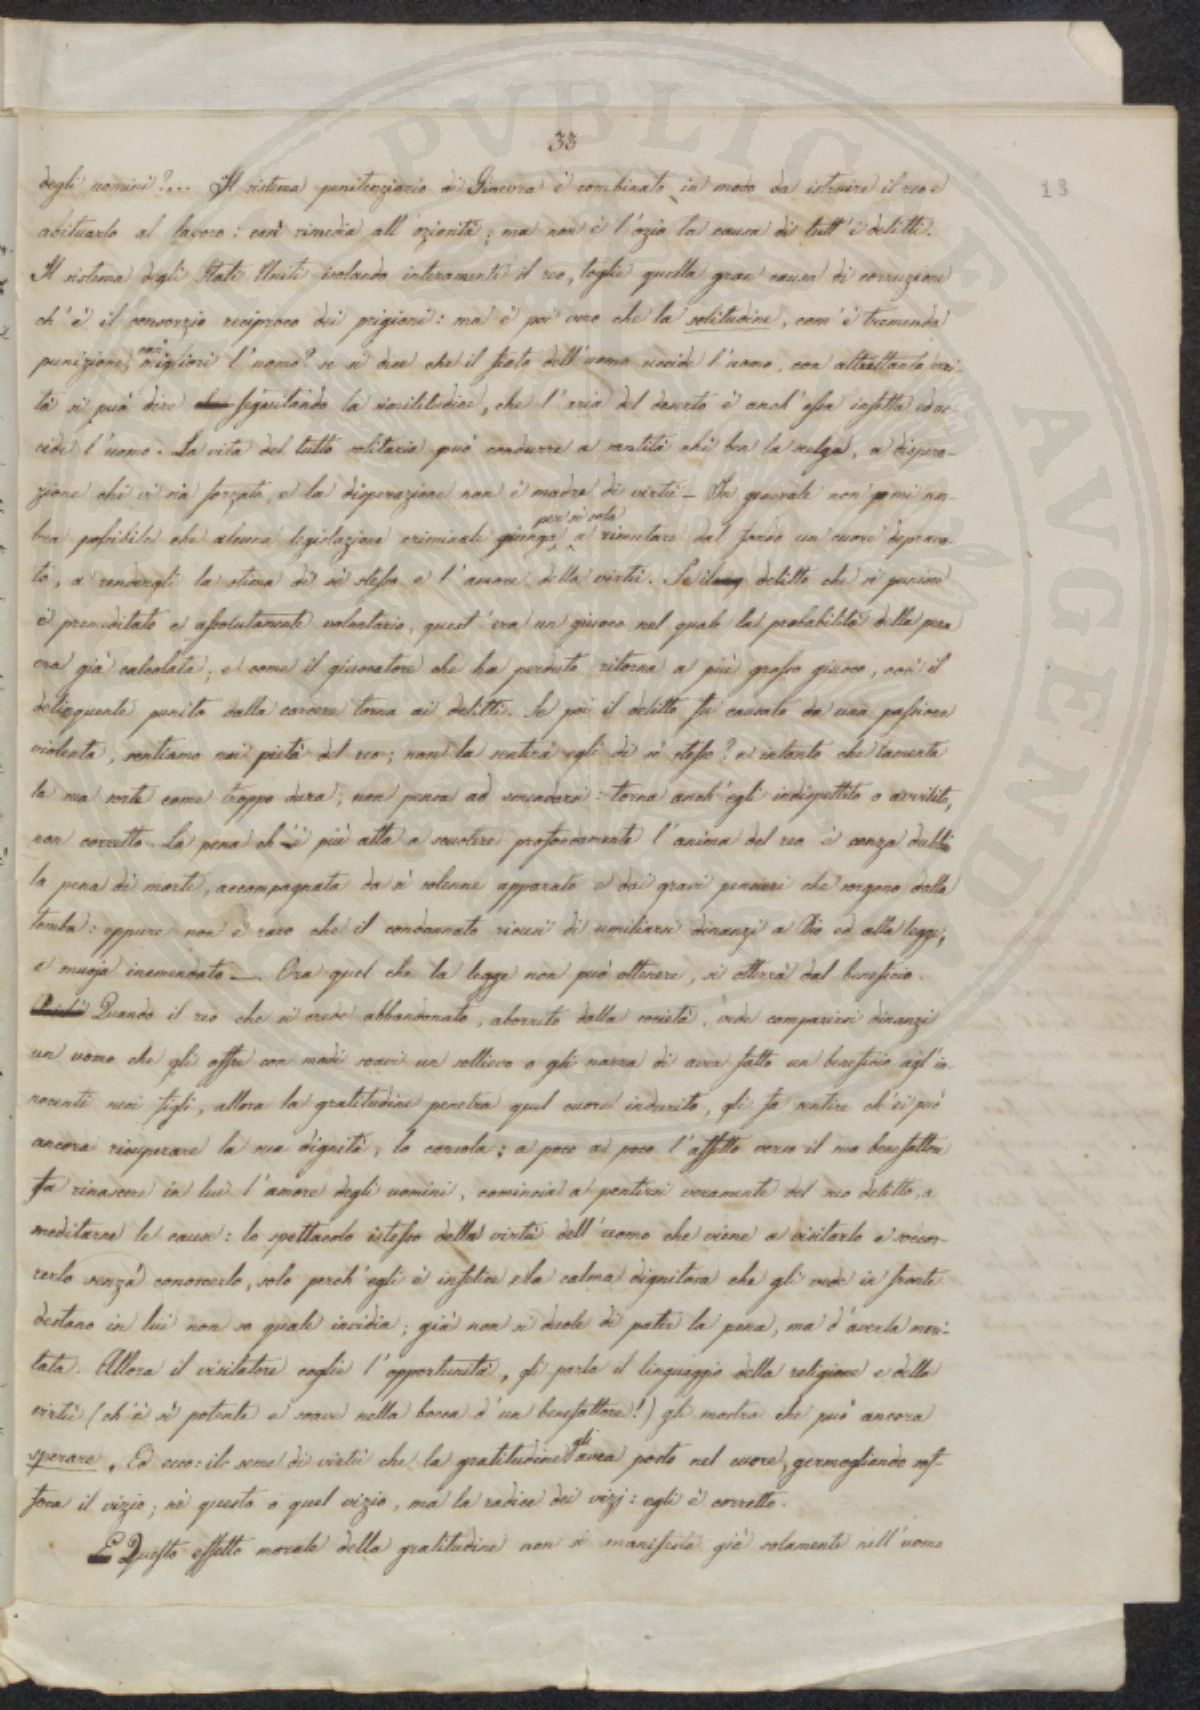 33
18
degli uomini?... Il sistema penitenziario di Ginevra è combinato in modo da istruire il reo e
abituarlo al lavoro: così rimedia all'oziosità; ma non è l'ozio la causa di tutt'i delitti.
Il sistema degli Stati Uniti isolando interamente il reo, toglie quella gran causa di corruzione
ch'è il consorzio reciproco dei prigioni: ma è poi vero che la solitudine, com'è tremenda
punizione, così migliori l'uomo? se si dice che il fiato dell'uomo uccide l'uomo, con altrettanta veri-
tà si può dire seguitando la similitudine, che l'aria del deserto è anch'essa infetta ed uc-
cide l'uomo. La vita del tutto solitaria può condurre a santità chi ben la scelga, a dispera-
zione chi vi sia forzato, e la disperazione non è madre di virtù — In generale non mi sem-
bra possibile che alcuna legislazione criminale giunga per sè sola a rimutare dal fondo un cuore deprava-
to, a rendergli la stima di sè stesso e l'amore della virtù. Se il delitto che si punisce
è premeditato e assolutamente volontario, quest'era un giuoco nel quale la probabilità della pena
era già calcolata; e come il giuocatore che ha perduto ritorna a più grosso giuoco, così il
delinquente punito dalla carcere torna ai delitti. Se poi il delitto fu causato da una passione
violenta, sentiamo noi pietà del reo; non la sentirà egli di sè stesso? e intanto che lamenta
la sua sorte come troppo dura, non pensa ad emendarsi: torna anch'egli indispettito o avvilito,
non corretto. La pena ch'è più atta a scuotere profondamente l'anima del reo è senza dubbio
la pena di morte, accompagnata da sì solenne apparato e dai gravi pensieri che sorgono dalla
tomba: eppure non è raro che il condannato ricusi di umiliarsi dinanzi a Dio ed alla legge,
e muoja inemendato — Ora quel che la legge non può ottenere, si otterrà dal beneficio.
Quando il reo che si crede abbandonato, aborrito dalla società, vede comparirsi dinanzi
un uomo che gli offre con modi soavi un sollievo o gli narra di aver fatto un beneficio agl'in-
nocenti suoi figli, allora la gratitudine penetra quel cuore indurito, gli fa sentire ch'ei può
ancora ricuperare la sua dignità, lo consola; a poco a poco l'affetto verso il suo benefattore
fa rinascere in lui l'amore degli uomini, comincia a pentirsi veramente del suo delitto, a
meditarne le cause: lo spettacolo istesso della virtù dell'uomo che viene a visitarlo e soccor-
rerlo senza conoscerlo, solo perch'egli è infelice e la calma dignitosa che gli vede in fronte
destano in lui non so quale invidia; già non si duole di patir la pena, ma d'averla meri-
tata. Allora il visitatore coglie l'opportunità, gli parla il linguaggio della religione e della
virtù (ch'è sì potente e soave nella bocca d'un benefattore!) gli mostra che può ancora
sperare. Ed ecco: il seme di virtù che la gratitudine gli avea posto nel cuore, germogliando sof-
foca il vizio; nè questo o quel vizio, ma la radice dei vizj: egli è corretto.
Questo effetto morale della gratitudine non si manifesta già solamente nell'uomo